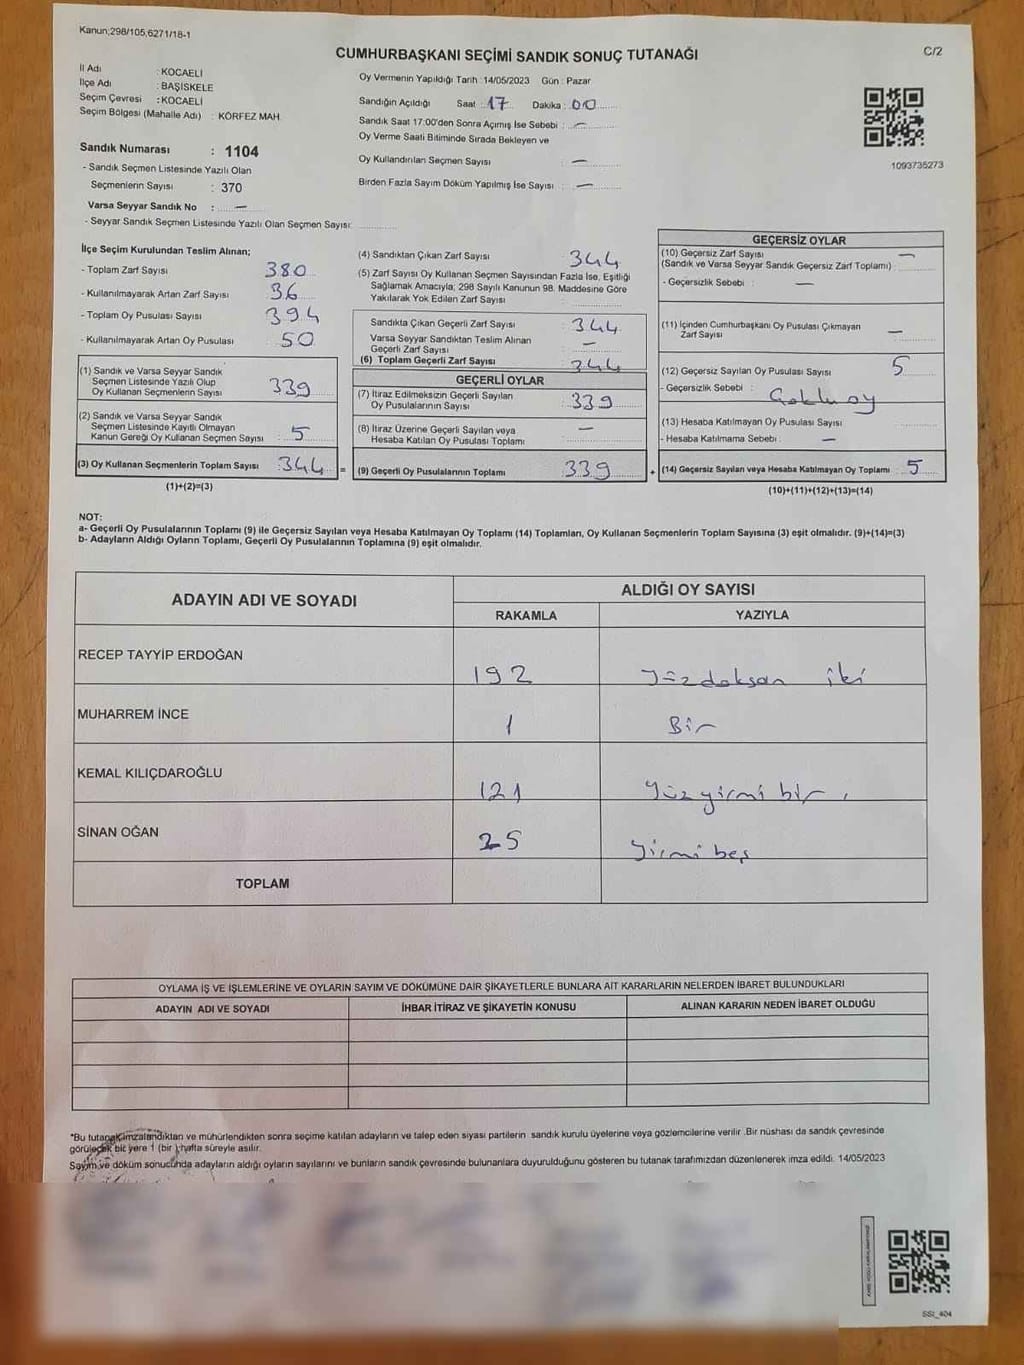 Kanun;298/105,6271/18-1
CUMHURBAŞKANI SEÇİMİ SANDIK SONUÇ TUTANAĞI
C/2
İl Adı : KOCAELİ
İlçe Adı : BAŞİSKELE
Seçim Çevresi : KOCAELİ
Seçim Bölgesi (Mahalle Adı) : KÖRFEZ MAH.
Sandık Numarası : 1104
- Sandık Seçmen Listesinde Yazılı Olan
Seçmenlerin Sayısı : 370
Varsa Seyyar Sandık No : —
- Seyyar Sandık Seçmen Listesinde Yazılı Olan Seçmen Sayısı:
Oy Vermenin Yapıldığı Tarih :14/05/2023 Gün : Pazar
Sandığın Açıldığı Saat : 17 Dakika : 00
Sandık Saat 17:00'den Sonra Açımış İse Sebebi : —
Oy Verme Saati Bitiminde Sırada Bekleyen ve
Oy Kullandırılan Seçmen Sayısı : —
Birden Fazla Sayım Döküm Yapılmış İse Sayısı : —
1093735273
İlçe Seçim Kurulundan Teslim Alınan;
- Toplam Zarf Sayısı 380
- Kullanılmayarak Artan Zarf Sayısı 36
- Toplam Oy Pusulası Sayısı 394
- Kullanılmayarak Artan Oy Pusulası 50
(1) Sandık ve Varsa Seyyar Sandık
Seçmen Listesinde Yazılı Olup
Oy Kullanan Seçmenlerin Sayısı 339
(2) Sandık ve Varsa Seyyar Sandık
Seçmen Listesinde Kayıtlı Olmayan
Kanun Gereği Oy Kullanan Seçmen Sayısı 5
(3) Oy Kullanan Seçmenlerin Toplam Sayısı 344 =
(1)+(2)=(3)
(4) Sandıktan Çıkan Zarf Sayısı 344
(5) Zarf Sayısı Oy Kullanan Seçmen Sayısından Fazla İse, Eşitliği
Sağlamak Amacıyla; 298 Sayılı Kanunun 98. Maddesine Göre
Yakılarak Yok Edilen Zarf Sayısı :
Sandıkta Çıkan Geçerli Zarf Sayısı : 344
Varsa Seyyar Sandıktan Teslim Alınan
Geçerli Zarf Sayısı : —
(6) Toplam Geçerli Zarf Sayısı : 344
GEÇERLİ OYLAR
(7) İtiraz Edilmeksizin Geçerli Sayılan
Oy Pusulalarının Sayısı : 339
(8) İtiraz Üzerine Geçerli Sayılan veya
Hesaba Katılan Oy Pusulası Toplamı : —
(9) Geçerli Oy Pusulalarının Toplamı : 339 +
GEÇERSİZ OYLAR
(10) Geçersiz Zarf Sayısı —
(Sandık ve Varsa Seyyar Sandık Geçersiz Zarf Toplamı) :
- Geçersizlik Sebebi : —
(11) İçinden Cumhurbaşkanı Oy Pusulası Çıkmayan
Zarf Sayısı —
(12) Geçersiz Sayılan Oy Pusulası Sayısı 5
- Geçersizlik Sebebi : Çoklu oy
(13) Hesaba Katılmayan Oy Pusulası Sayısı
- Hesaba Katılmama Sebebi : —
(14) Geçersiz Sayılan veya Hesaba Katılmayan Oy Toplamı : 5
(10)+(11)+(12)+(13)=(14)
NOT:
a- Geçerli Oy Pusulalarının Toplamı (9) ile Geçersiz Sayılan veya Hesaba Katılmayan Oy Toplamı (14) Toplamları, Oy Kullanan Seçmenlerin Toplam Sayısına (3) eşit olmalıdır. (9)+(14)=(3)
b- Adayların Aldığı Oyların Toplamı, Geçerli Oy Pusulalarının Toplamına (9) eşit olmalıdır.
ADAYIN ADI VE SOYADI
ALDIĞI OY SAYISI
RAKAMLA YAZIYLA
RECEP TAYYİP ERDOĞAN 192 Yüzdoksan iki
MUHARREM İNCE 1 Bir
KEMAL KILIÇDAROĞLU 121 Yüzyirmi bir
SİNAN OĞAN 25 Yirmi beş
TOPLAM
OYLAMA İŞ VE İŞLEMLERİNE VE OYLARIN SAYIM VE DÖKÜMÜNE DAİR ŞİKAYETLERLE BUNLARA AİT KARARLARIN NELERDEN İBARET BULUNDUKLARI
ADAYIN ADI VE SOYADI İHBAR İTİRAZ VE ŞİKAYETİN KONUSU ALINAN KARARIN NEDEN İBARET OLDUĞU
*Bu tutanak imzalandıktan ve mühürlendikten sonra seçime katılan adayların ve talep eden siyasi partilerin sandık kurulu üyelerine veya gözlemcilerine verilir .Bir nüshası da sandık çevresinde
görülecek bir yere 1 (bir ) hafta süreyle asılır.
Sayım ve döküm sonucunda adayların aldığı oyların sayılarını ve bunların sandık çevresinde bulunanlara duyurulduğunu gösteren bu tutanak tarafımızdan düzenlenerek imza edildi. 14/05/2023
SSI_404